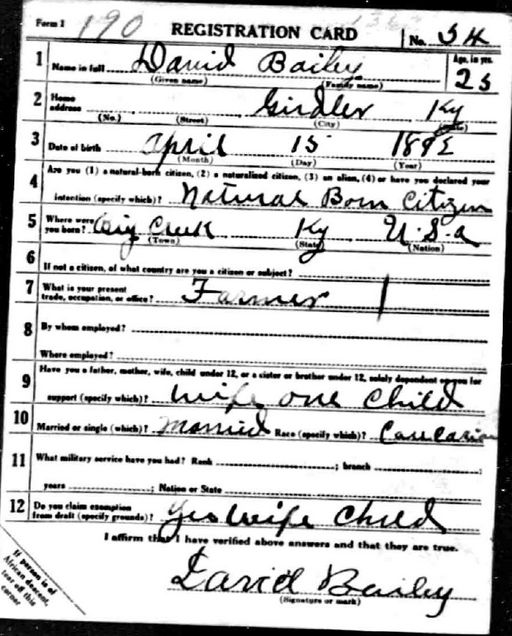 Form 1 190 REGISTRATION CARD No. 54
1 Name in full David Bailey Age, in yrs. 25
(Given name) (Family name)
2 Home address Girdler Ky
(No.) (Street) (City) (State)
3 Date of birth April 15 1892
(Month) (Day) (Year)
4 Are you (1) a natural-born citizen, (2) a naturalized citizen, (3) an alien, (4) or have you declared your
intention (specify which)? Natural Born Citizen
5 Where were you born? Creek Ky U.S.A
(Town) (State) (Nation)
6 If not a citizen, of what country are you a citizen or subject?
7 What is your present trade, occupation, or office? Farmer
8 By whom employed?
Where employed?
9 Have you a father, mother, wife, child under 12, or a sister or brother under 12, solely dependent on you for
support (specify which)? wife one child
10 Married or single (which)? Married Race (specify which)? Caucasian
11 What military service have you had? Rank ; branch ;
years ; Nation or State
12 Do you claim exemption from draft (specify grounds)? yes wife child
I affirm that I have verified above answers and that they are true.
David Bailey
(Signature or mark)
If person is of
African descent,
tear off this
corner